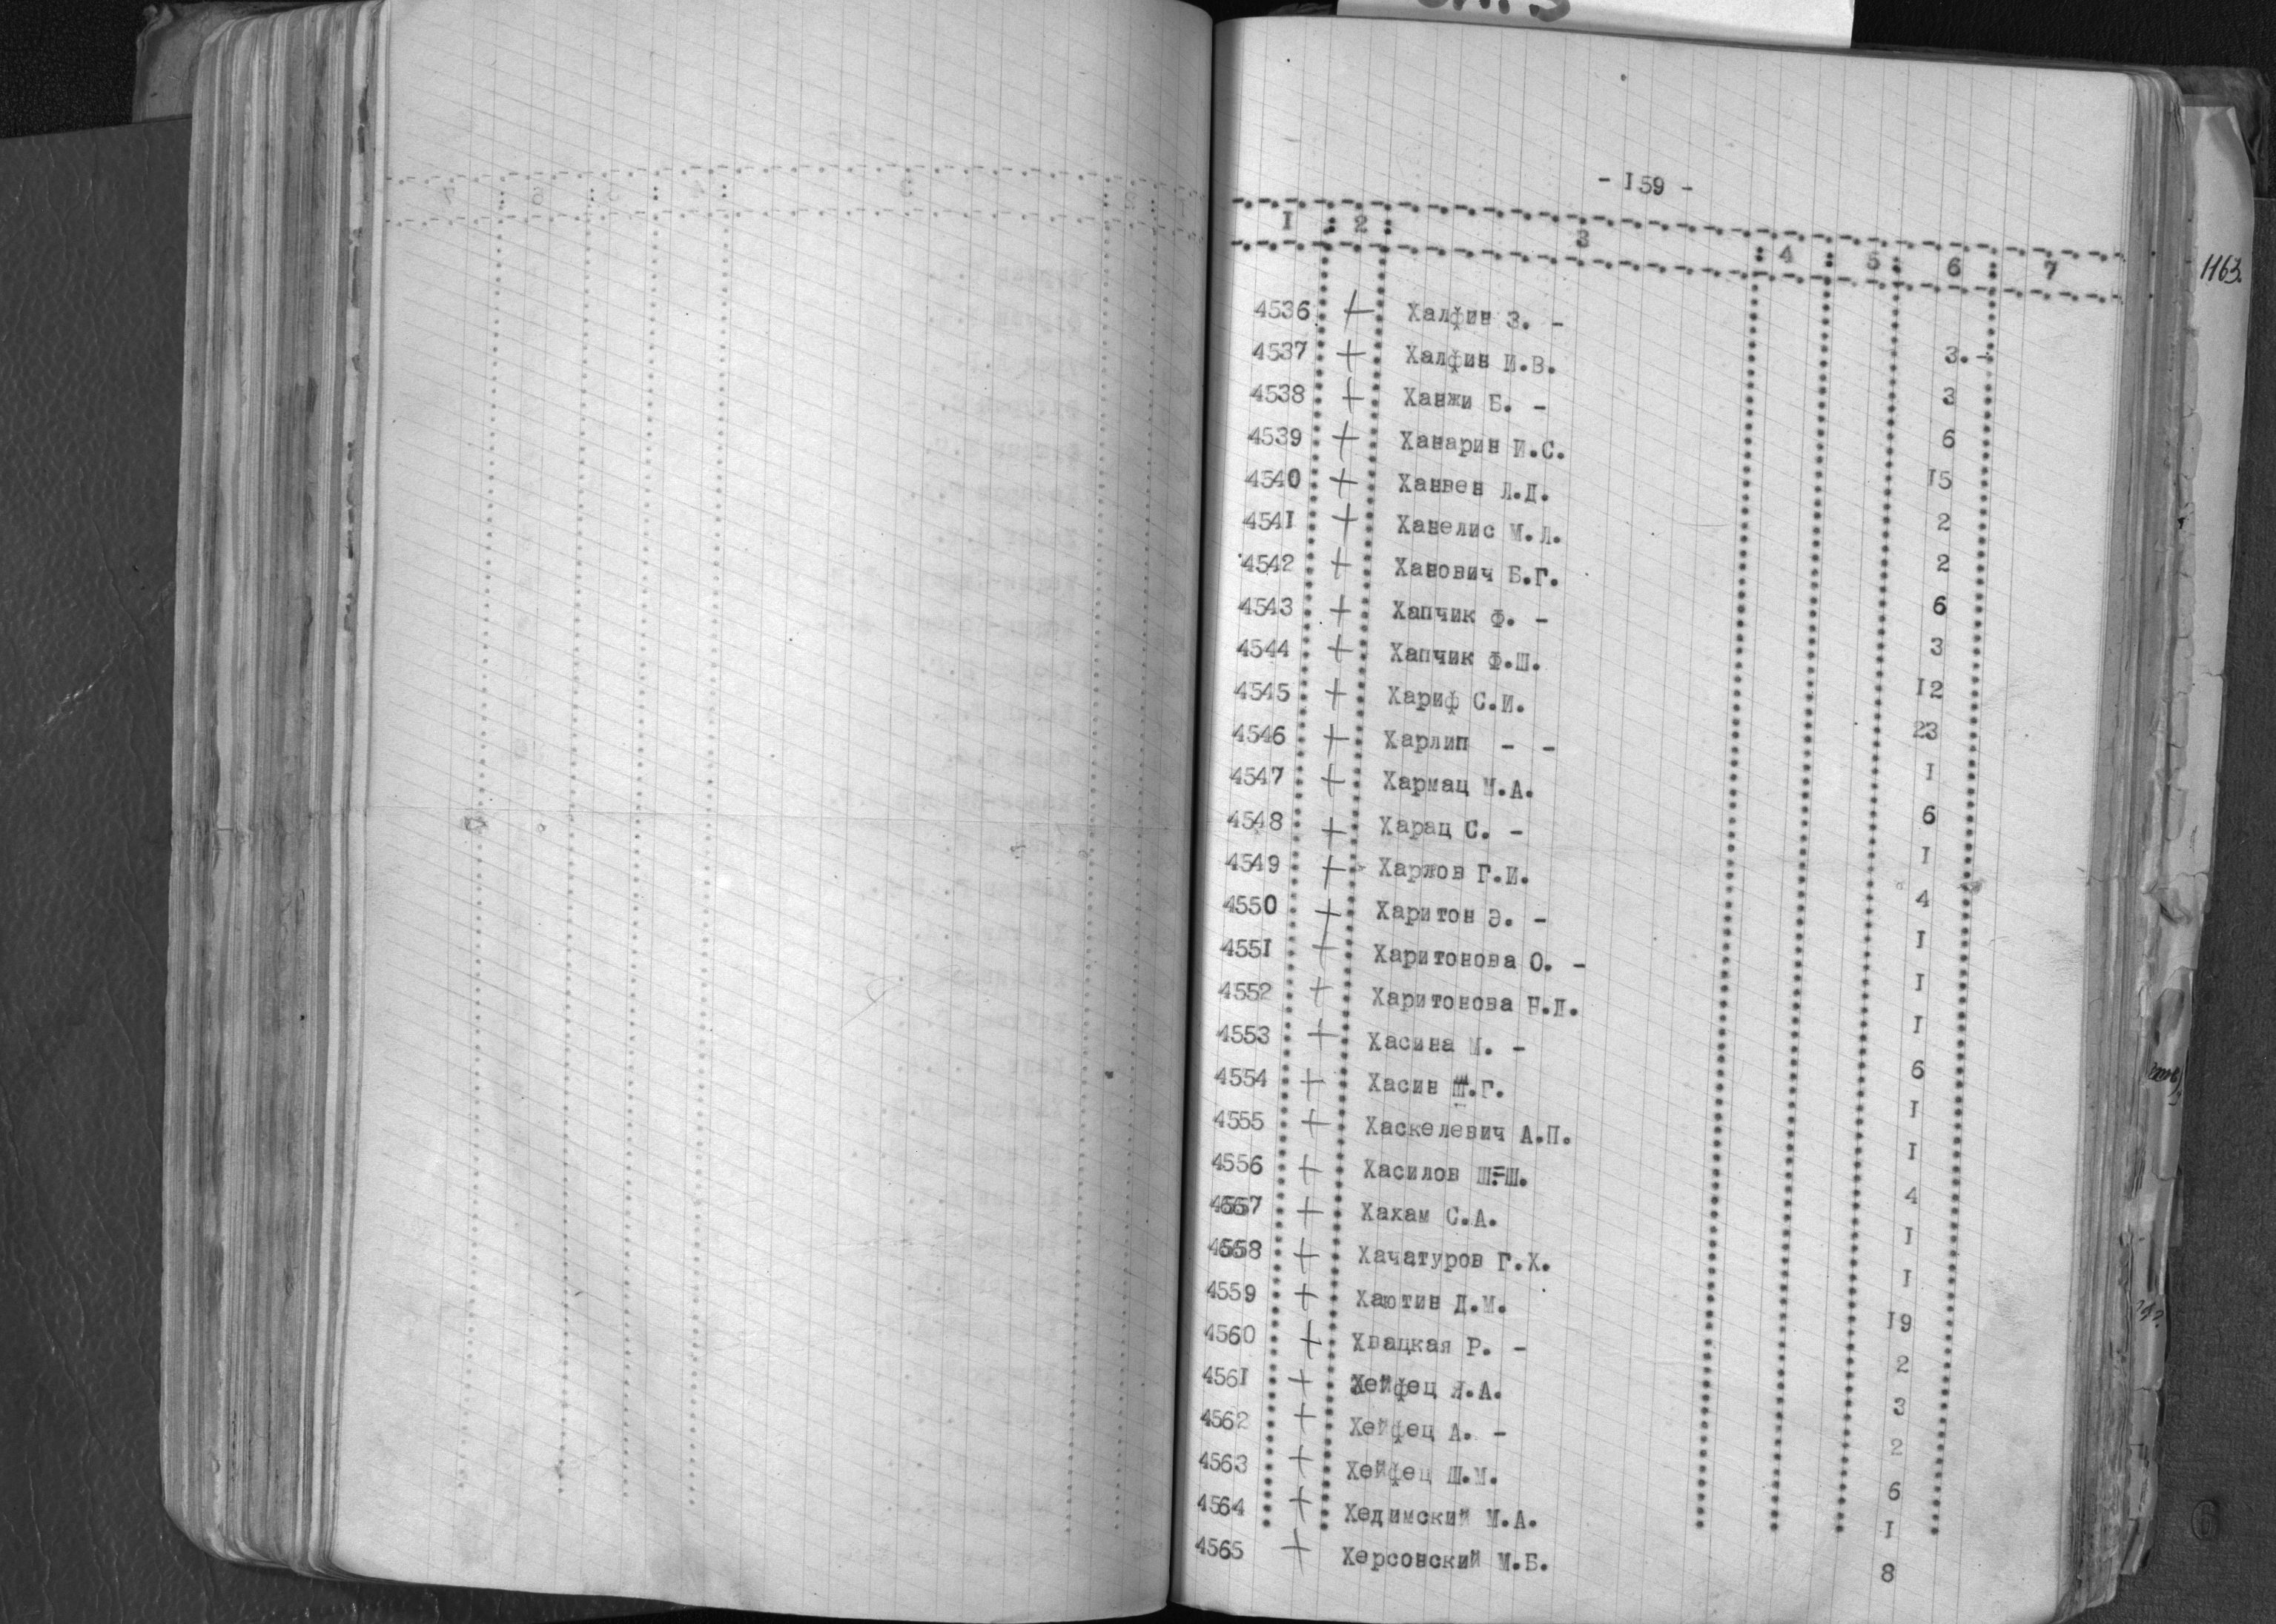 - I59 -
I : 2 : 3 : 4 : 5 : 6 : 7
1163.
4536 + Халфин З. - 3. -
4537 + Халфин И.В. 3
4538 + Ханжи Б. - 6
4539 + Ханарин И.С. I5
4540 + Ханвен Л.Д. 2
454I + Ханелис М.Л. 2
4542 + Ханович Б.Г. 6
4543 + Хапчик Ф. - 3
4544 + Хапчик Ф.Ш. I2
4545 + Хариф С.И. 23
4546 + Харлип - - I
4547 + Хармац М.А. 6
4548 + Харац С. - I
4549 + Харлов Г.И. 4
4550 + Харитон Э. - I
455I + Харитонова О. - I
4552 + Харитонова Н.Д. I
4553 + Хасина М. - 6
4554 + Хасин Ш.Г. I
4555 + Хаскелевич А.П. I
4556 + Хасилов Ш.Ш. 4
4557 + Хахам С.А. I
4558 + Хачатуров Г.Х. I
4559 + Хаютин Д.М. I9
4560 + Хвацкая Р. - 2
456I + Хейфец Я.А. 3
4562 + Хейфец А. - 2
4563 + Хейфец Ш.М. 6
4564 + Хедимский М.А. I
4565 + Херсонский М.Б. 8